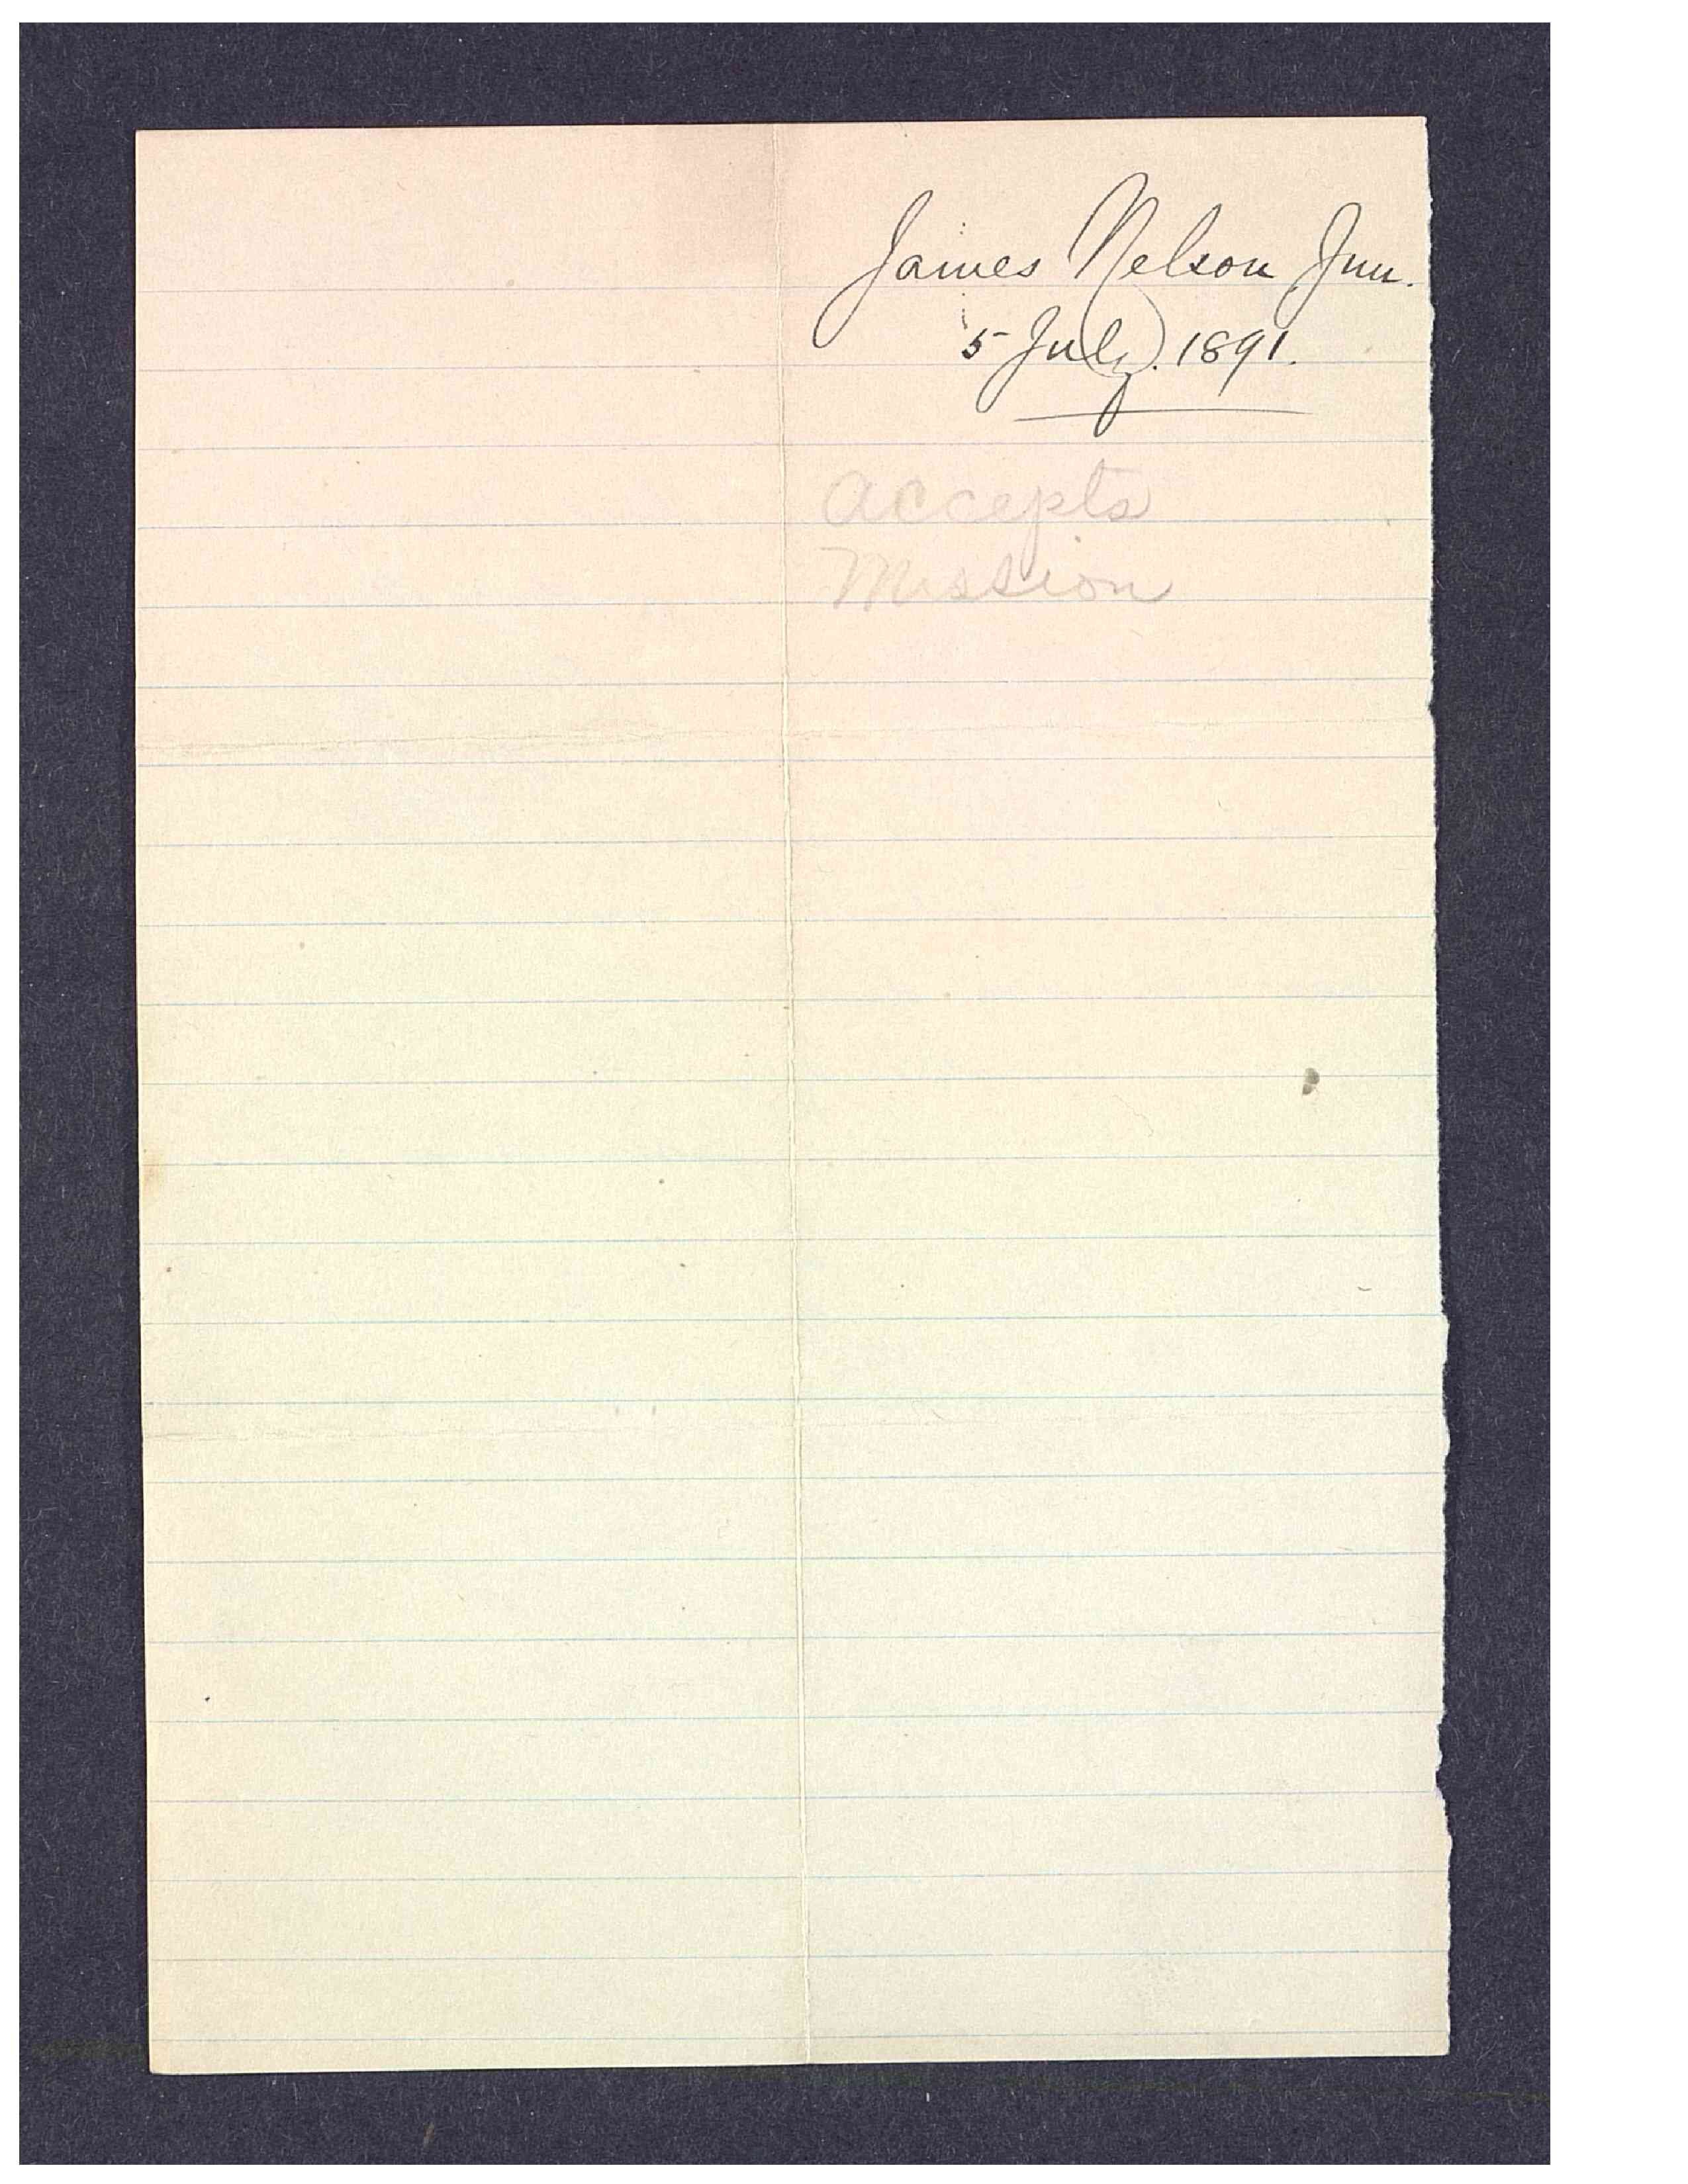 James Nelson Jun.
5 July. 1891.
accepts
Mission